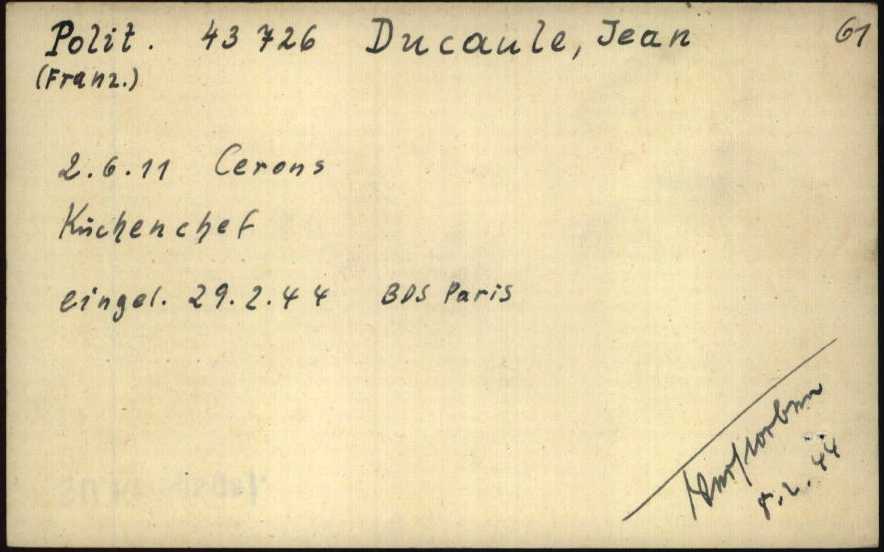 Polit. 43 726 Ducaule, Jean 61
(Franz.)
2.6.11 Cerons
Küchenchef
eingel. 29.2.44 BDS Paris
Verstorben
8.2.44